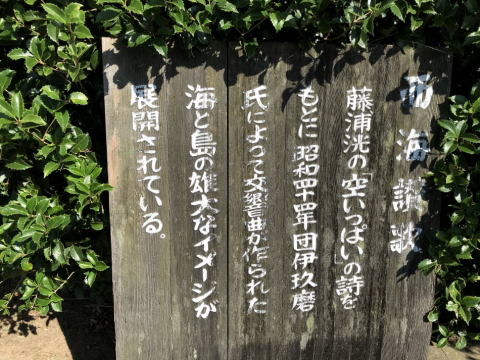 西海讃歌
藤浦洸の「空いっぱい」の詩を
もとに 昭和四十四年団伊玖磨
氏によって交響曲が作られた
海と島の雄大なイメージが
展開されている。